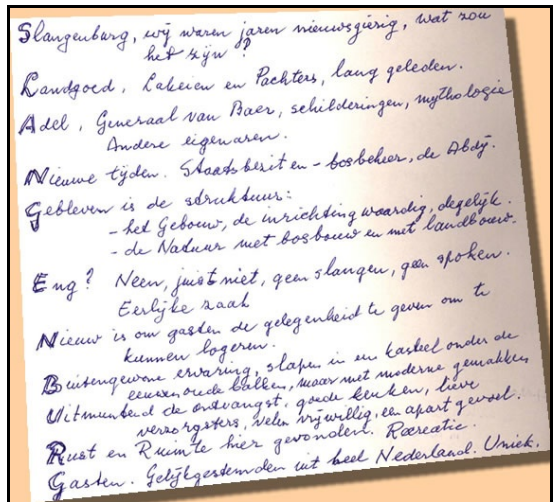 Slangenburg, wij waren jaren nieuwsgierig, wat zou
het zijn?
Landgoed, Lakeien en Pachters, lang geleden.
Adel, Generaal van Baer, schilderingen, mythologie
Andere eigenaren.
Nieuwe tijden. Staatsbezit en - bosbeheer, de Abdij.
Gebleven is de struktuur:
- het Gebouw, de inrichting waardig, degelijk.
- de Natuur met bosbouw en met landbouw.
Eng? Neen, juist niet, geen slangen, geen spoken.
Eerlijke zaak
Nieuw is om gasten de gelegenheid te geven om te
kunnen logeren.
Buitengewone ervaring, slapen in een kasteel onder de
eeuwenoude balken, maar met moderne gemakken
Uitmuntend de ontvangst, goede keuken, lieve
verzorgsters, velen vrijwillig, een apart gevoel.
Rust en Ruimte hier gevonden. Recreatie.
Gasten. Gelijkgestemden uit heel Nederland. Uniek.